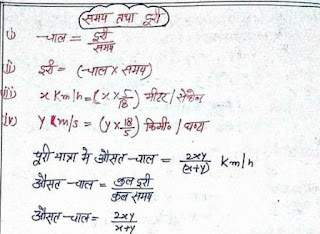 समय तथा दूरी
(i) चाल = दूरी / समय
(ii) दूरी = (चाल × समय)
(iii) x Km/h = (x × 5/18) मीटर / सेकेन्ड
(iv) y Km/s = (y × 18/5) किमी० / घण्टा
पूरी यात्रा मे औसत चाल = 2xy / (x+y) Km/h
औसत - चाल = कुल दूरी / कुल समय
औसत - चाल = 2xy / x+y